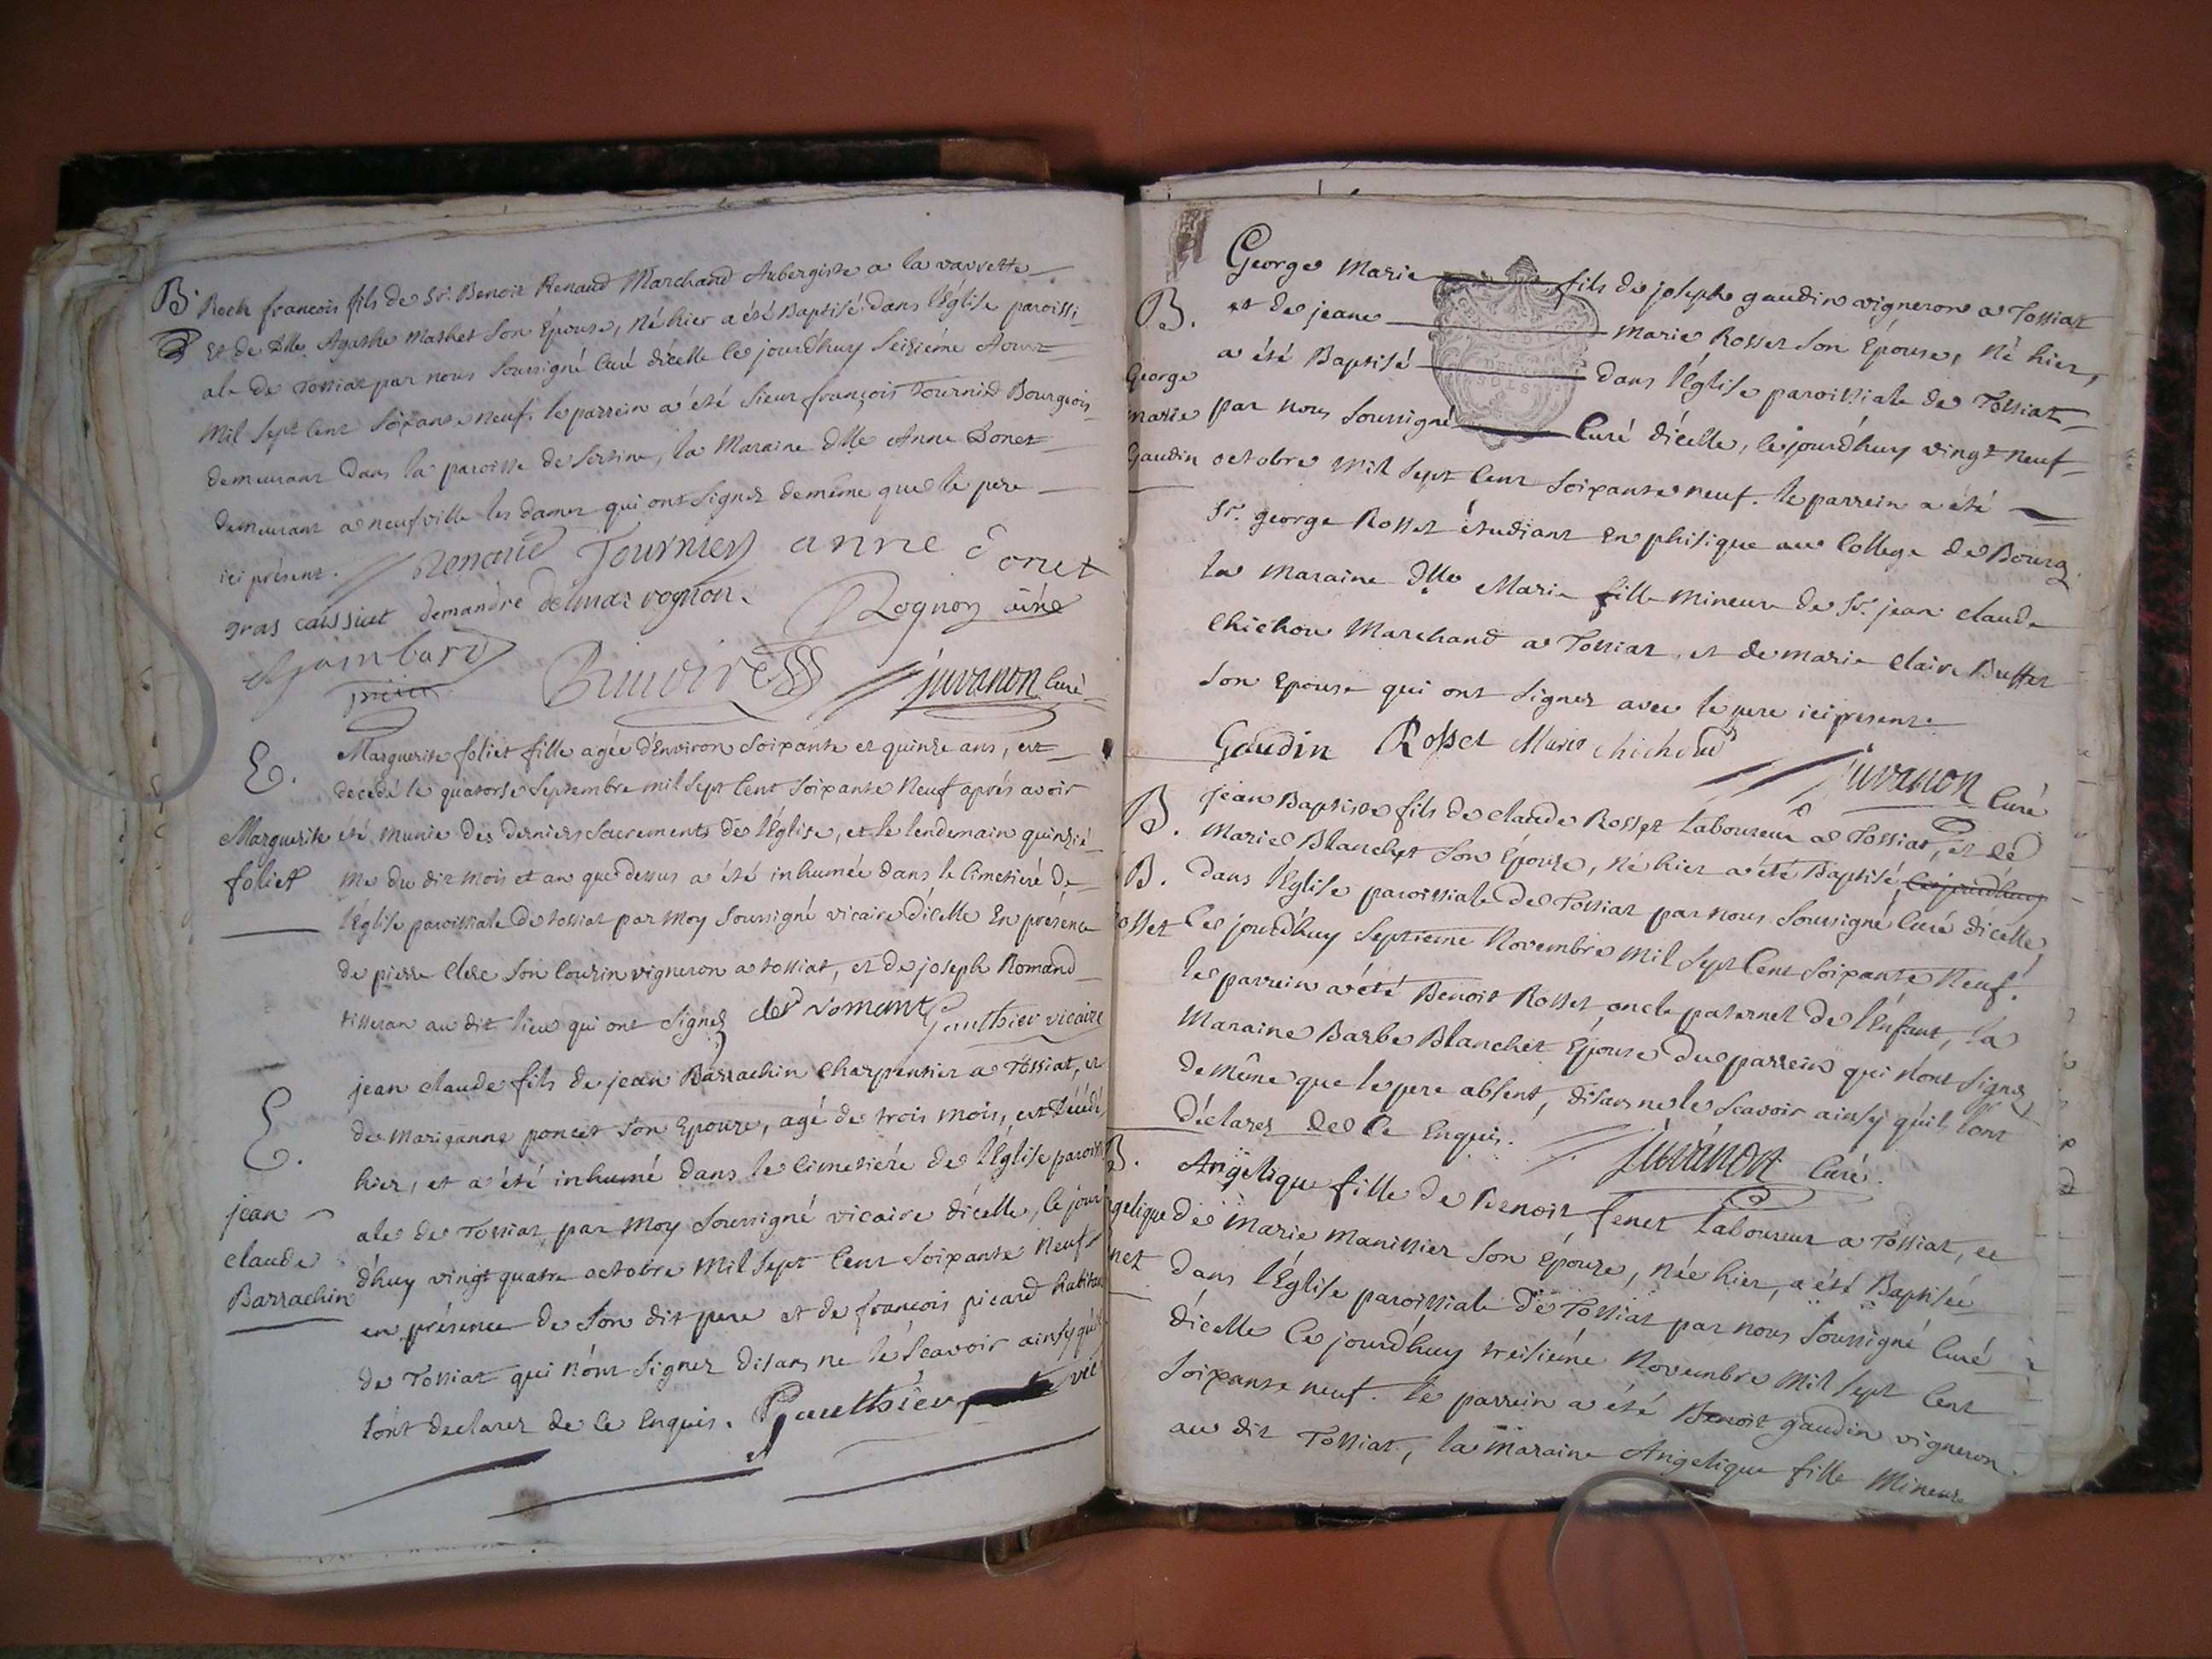 B. Roch francois fils de Sr. Benoit Renaud Marchand Aubergiste a la vavrette
Et de Dlle. Agathe Mathet Son Épouse, Né hier a été Baptisé dans l'Église paroissi-
ale de Tossiat par nous Soussigné Curé d'icelle ce jourd'huy Seizième Aoust
mil Sept Cent Soixante neuf. le parrein a été Sieur françois Tournié Bourgeois
demeurant dans la paroisse de Sertine, la Maraine Dlle Anne Donet
demeurant a neufville les dames qui ont Signez de même que le pere
ici présent. Renaud Tournier anne donet
gras demandre delmas rognon. Rognon ainé
juvanon Curé
E. Marguerite foliet fille agée d'Environ Soixante et quinze ans, est
décédé le quatorse Septembre mil Sept Cent Soixante Neuf aprés avoir
Marguerite été munie des derniers Sacrements de l'Église, et le lendemain quinziè-
foliet me du dit mois et an que dessus a été inhumée dans le Cimetiere de
l'Église paroissiale de tossiat par Moy Soussigné vicaire d'icelle En présence
de pierre Clerc Son Cousin vigneron a tossiat, et de joseph Romand
tisseran au dit lieu qui ont Signez clerc romant Gauthier vicaire
E. jean claude fils de jean Barrachin Charpentier a Tossiat, et
de marianne poncet Son Epouse, agé de trois mois, est Décédé
hier, et a été inhumé dans le Cimetiére de l'Église paroissi
jean ale de Tossiat par Moy Soussigné vicaire d'icelle, ce jour
claude d'huy vingt quatre octobre Mil Sept Cent Soixante Neuf
Barrachin en présence de Son dit pere et de françois picard habitan
de Tossiat qui n'ont Signez disans ne le Scavoir ainsy qu'ils
l'ont declarez de ce Enquis. Gauthier vic
George Marie fils de joseph gaudin vigneron a Tossiat
B. et de jeane Marie Rosset Son Épouse, Né hier,
a été Baptisé dans l'Église paroissiale de Tossiat
George
marie par nous Soussigné Curé d'icelle, ce jourd'huy vingt neuf
Gaudin octobre Mil Sept Cent Soixante neuf. le parrein a été
Sr. george Rosset étudiant En phisique au College de Bourg
la maraine Dlle Marie fille mineure de Sr. jean claude
Chichou Marchand a Tossiat, et de marie Claire Buffet
Son Epouse qui ont Signez avec le pere ici present.
Gaudin Rosset Marie chichoud
juvanon Curé
B. jean Baptiste fils de claude Rosset Laboureur a Tossiat, et de
Marie Blanchet Son Épouse, Né hier a été Baptisé, ce jourd'huy
B. dans l'Église paroissiale de Tossiat par nous Soussigné Curé d'icelle,
osset Ce jourd'huy Septieme Novembre Mil Sept Cent Soixante Neuf.
le parrein a été Benoit Rosset oncle paternel de l'Enfant, la
Maraine Barbe Blanchet Épouse du parrein qui n'ont Signez
de même que le pere absent, disans ne le Scavoir ainsy qu'ils l'ont
déclarez de Ce Enquis. juvanon Curé.
B. Angélique fille de Benoit fenet Laboureur a Tossiat, et
gelique de Marie Manissier Son Épouse, Née hier, a été Baptisée
net dans l'Église paroissiale de Tossiat par nous Soussigné Curé
d'icelle Ce jourd'huy treisiéme Novembre Mil Sept Cent
Soixante neuf. le parrein a été Benoit gaudin vigneron
au dit Tossiat, la Maraine Angelique fille Mineure